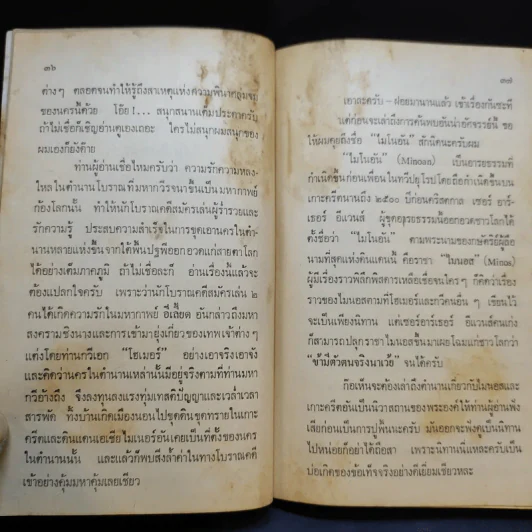 ๓๖
ต่างๆ ตลอดจนทำให้รู้ถึงสาเหตุแห่งความพินาศล่มจม
ของนครนี้ด้วย โอ๊ย!... สนุกสนานเต็มประดาครับ
ถ้าไม่เชื่อก็เชิญอ่านดูเองเถอะ ใครไม่สนุกผมสนุกของ
ผมเองก็ยังด้าย
ท่านผู้อ่านเชื่อไหมครับว่า ความรักความหลง-
ไหลในตำนานโบราณที่มหากวีรจนาขึ้นเป็นมหากาพย์
ก้องโลกนั้น ทำให้นักโบราณคดีสมัครเล่นผู้ร่ำรวยและ
รักความรู้ ประสบความสำเร็จในการขุดเอานครในตำ-
นานหลายแห่งขึ้นจากใต้พื้นปฐพีออกอวดแก่สายตาโลก
ได้อย่างเต็มภาคภูมิ ถ้าไม่เชื่อละก็ อ่านเรื่องนี้แล้วจะ
ต้องแปลกใจครับ เพราะว่านักโบราณคดีสมัครเล่น ๒
คนได้เกิดความรักในมหากาพย์ อีเลียด อันกล่าวถึงมหา
สงครามชิงนางและการเข้ามายุ่งเกี่ยวของเทพเจ้าต่างๆ
แต่งโดยท่านกวีเอก "โฮเมอร์" อย่างเอาจริงเอาจัง
และคิดว่านครในตำนานเหล่านั้นมีอยู่จริงตามที่ท่านมหา
กวีอ้างถึง จึงลงทุนลงแรงทุ่มเทสติปัญญาและเวล่ำเวลา
สารพัด ทิ้งบ้านเกิดเมืองนอนไปขุดดินขุดทรายในเกาะ
ครีตและดินแดนเอเซียไมเนอร์อันเคยเป็นที่ตั้งของนคร
ในตำนานนั้น และแล้วก็พบสิ่งล้ำค่าในทางโบราณคดี
เข้าอย่างคุ้มมหาคุ้มเลยเชียว
๓๗
เอาละครับ - ฝอยมานานแล้ว เข้าเรื่องกันซะที
แต่ก่อนจะเล่าถึงการค้นพบอันน่าอัศจรรย์นี้ ขอ
ให้ผมคุยถึงชื่อ "ไมโนอัน" สักนิดนะครับผม
"ไมโนอัน" (Minoan) เป็นอารยธรรมที่
กำเนิดขึ้นก่อนเพื่อนในทวีปยุโรปโดยถือกำเนิดขึ้นบน
เกาะครีตนานถึง ๒๕๐๐ ปีก่อนคริสตกาล เซอร์ อาร์-
เธอร์ อีแวนส์ ผู้ขุดอารยธรรมนี้ออกอวดชาวโลกได้
ตั้งชื่อว่า "ไมโนอัน" ตามพระนามของกษัตริย์ผู้ลือ
นามที่สุดแห่งดินแดนนี้ คือราชา "ไมนอส" (Minos)
ผู้มีเรื่องราวพิลึกพิสดารเหลือเชื่อจนใครๆ ก็คิดว่าเรื่อง
ราวของไมนอสตามที่โฮเมอร์และกวีคนอื่นๆ เขียนไว้
จะเป็นเพียงนิทาน แต่เซอร์อาร์เธอร์ อีแวนส์คนเก่ง
ก็สามารถปลุกราชาไมนอสขึ้นมาเผยโฉมแก่ชาวโลกว่า
"ข้ามีตัวตนจริงนาเว้ย" จนได้ครับ
ก็เห็นจะต้องเล่าถึงตำนานเกี่ยวกับไมนอสและ
เกาะครีตอันเป็นนิวาสถานของพระองค์ให้ท่านผู้อ่านฟัง
เสียก่อนเป็นการปูพื้นนะครับ มันออกจะฟังดูเป็นนิทาน
ไปหน่อยก็อย่าได้ถือสา เพราะนิทานนี่แหละครับเป็น
บ่อเกิดของข้อเท็จจริงอย่างดีเยี่ยมเชียวหละ